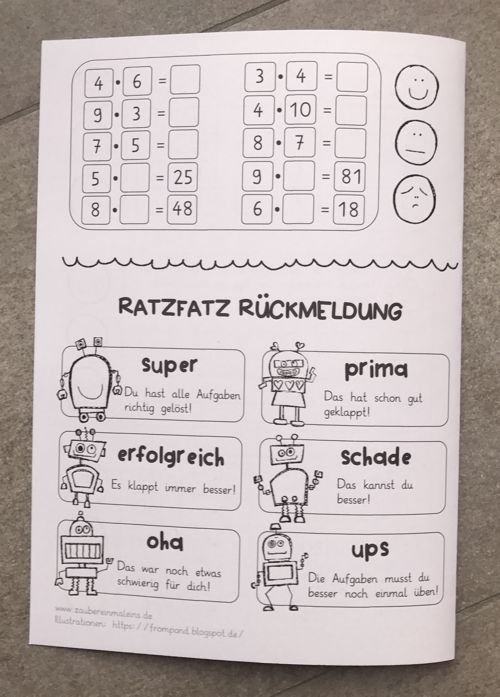 4 · 6 =
3 · 4 =
9 · 3 =
4 · 10 =
7 · 5 =
8 · 7 =
5 · = 25
9 · = 81
8 · = 48
6 · = 18
RATZFATZ RÜCKMELDUNG
super
Du hast alle Aufgaben
richtig gelöst!
prima
Das hat schon gut
geklappt!
erfolgreich
Es klappt immer besser!
schade
Das kannst du
besser!
oha
Das war noch etwas
schwierig für dich!
ups
Die Aufgaben musst du
besser noch einmal üben!
www.zaubereinmaleins.de
Illustrationen: https://frompond.blogspot.de/